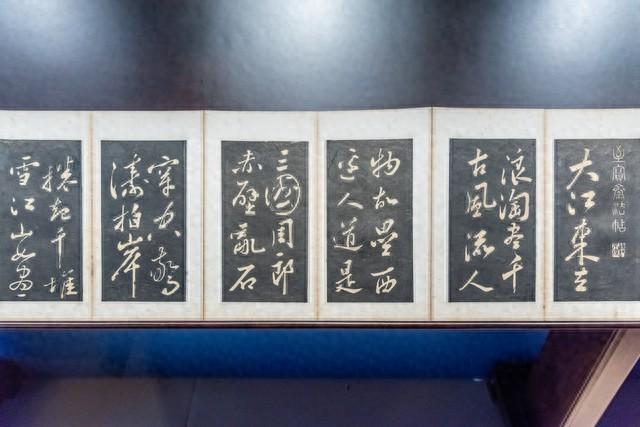 大江東去
浪淘盡千
古風流人
物故壘西
邊人道是
三國周郎
赤壁亂石
穿空驚
濤拍岸
捲起千堆
雪江山如畫